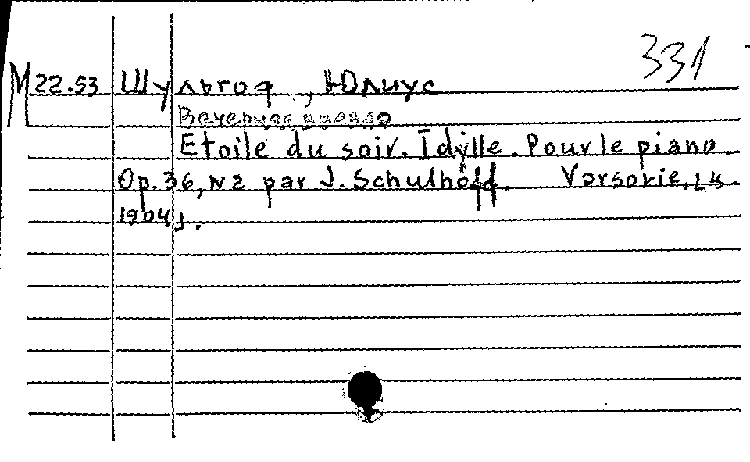 331
М22.53 Шульгоф, Юлиус
Вечерняя звезда
Etoile du soir. Idylle. Pour le piano.
Op. 36, N2 par J. Schulhoff. Varsovie,
1904].